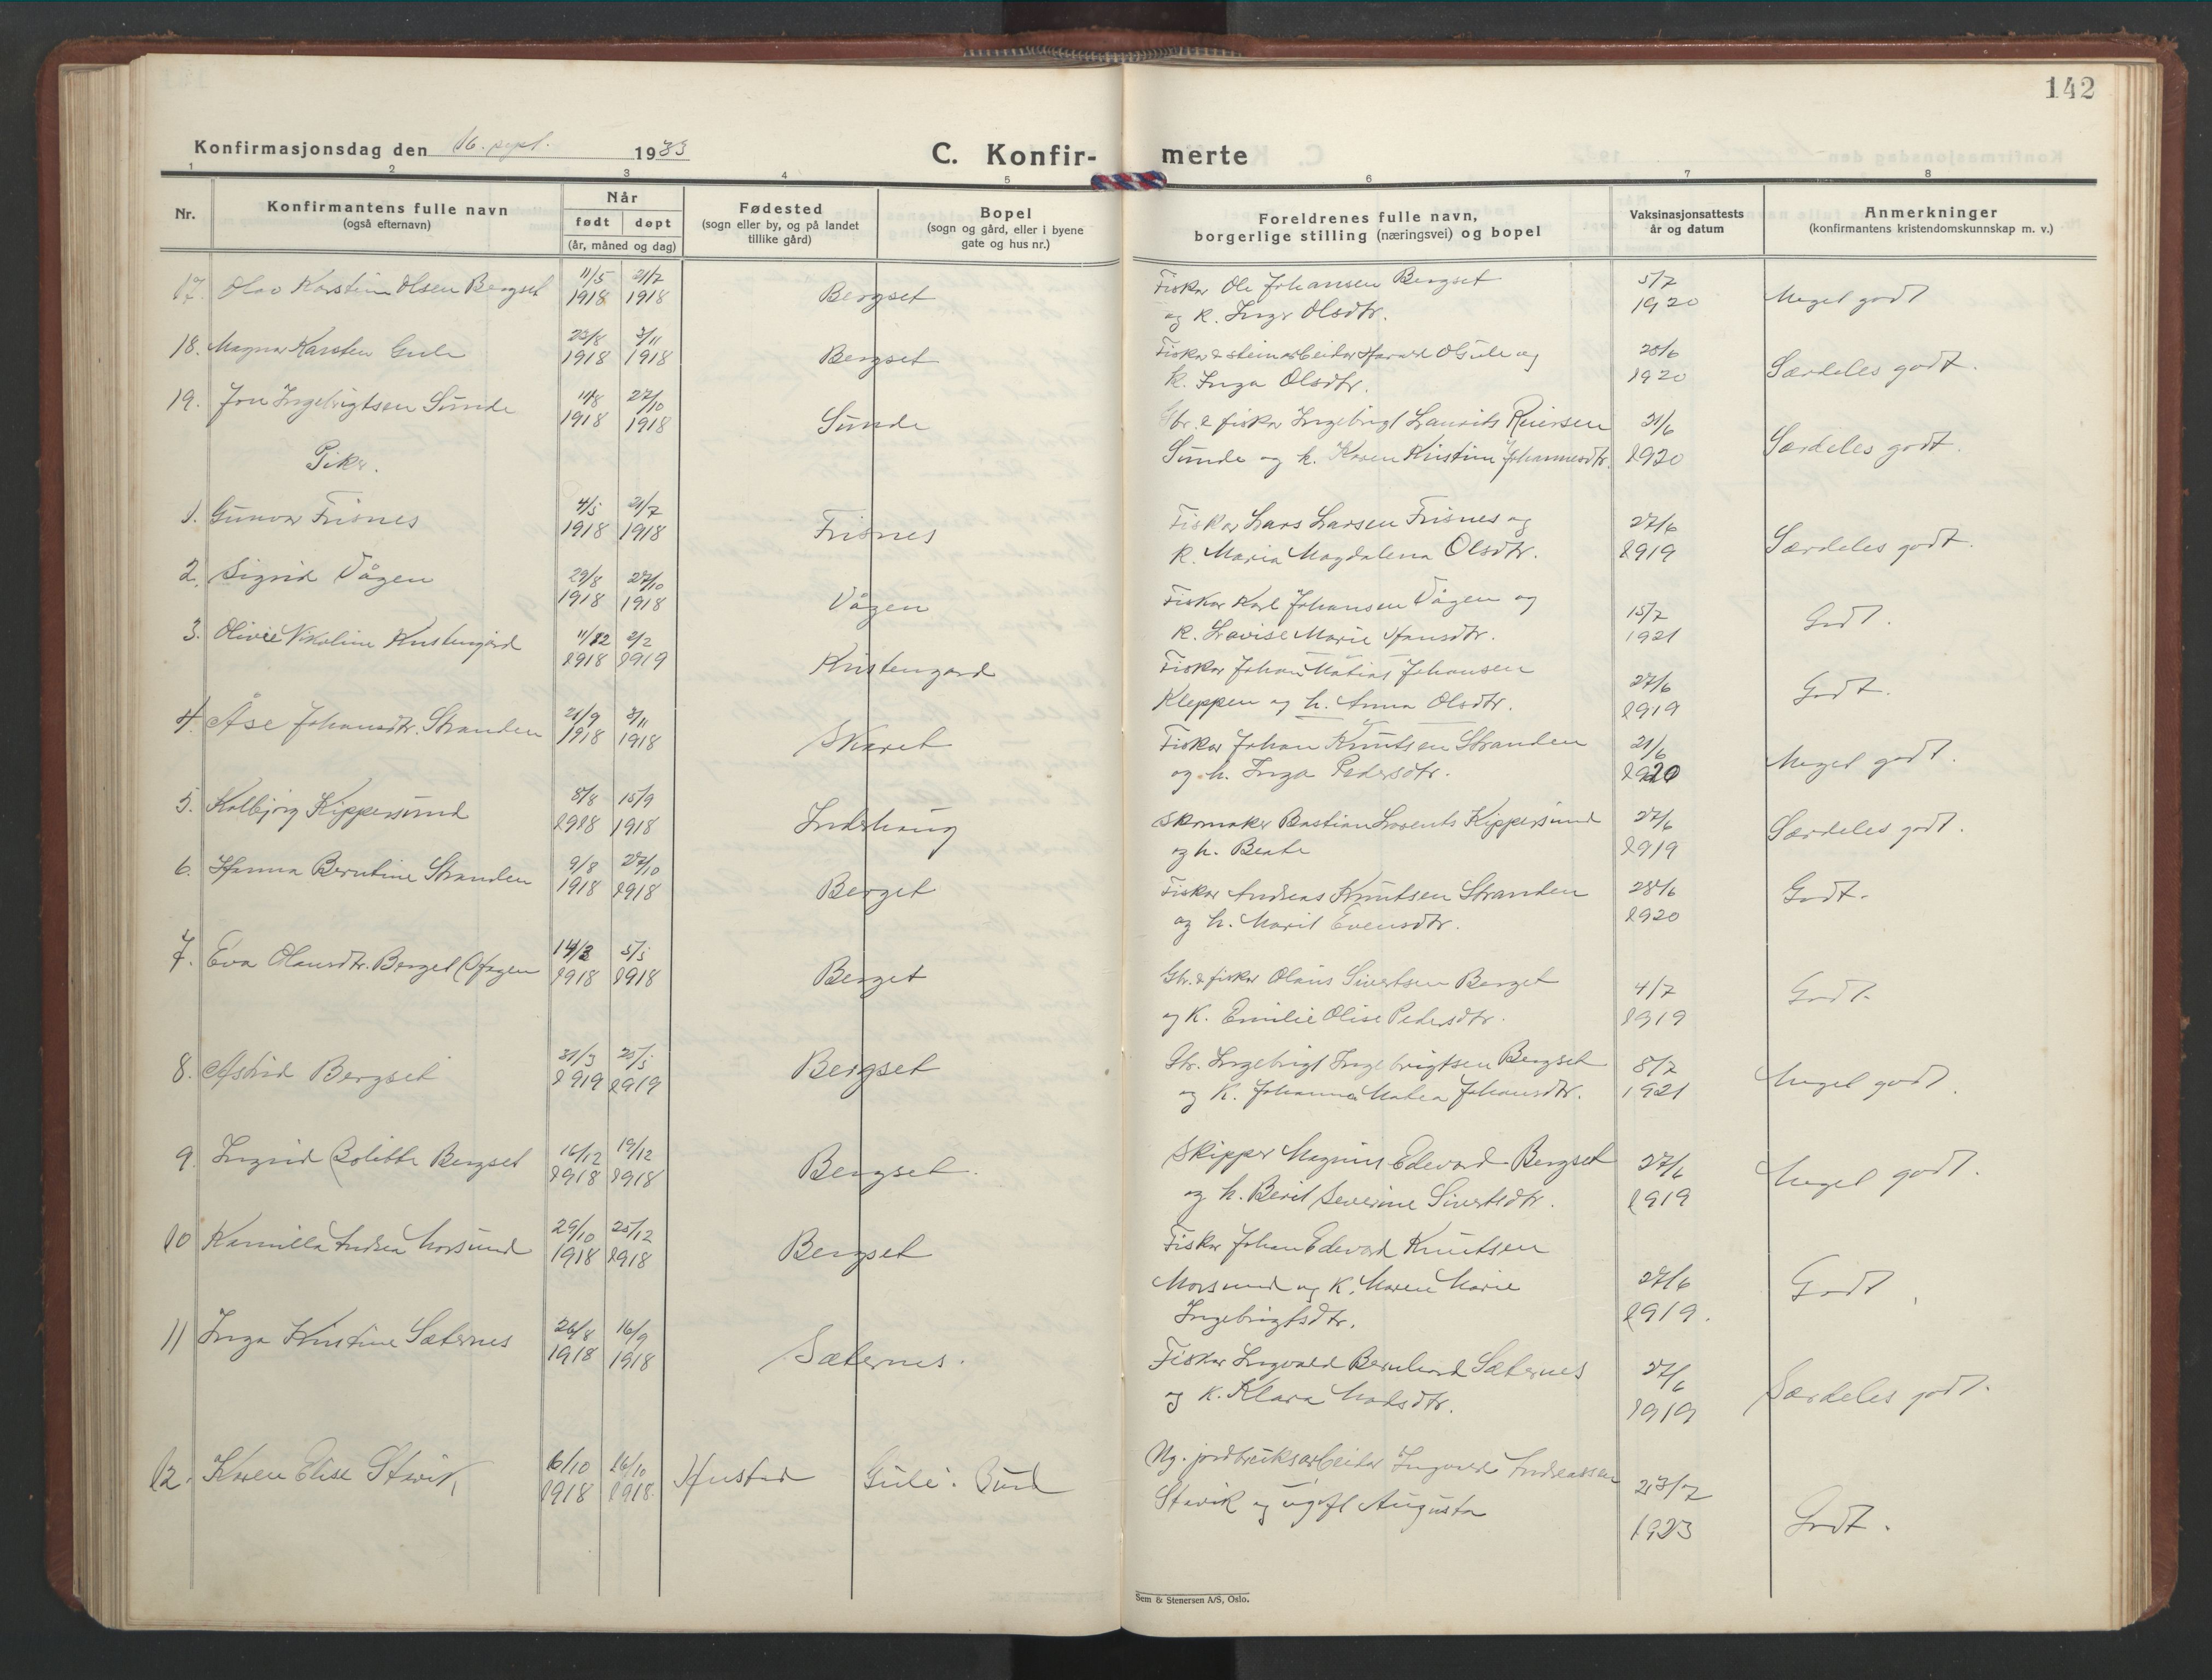 142
Konfirmasjonsdag den 16. sept. 1933
C. Konfir- merte
1 2 3 4 5 6 7 8
Nr.
Konfirmantens fulle navn
(også efternavn)
Når
født døpt
(år, måned og dag)
Fødested
(sogn eller by, og på landet
tillike gård)
Bopel
(sogn og gård, eller i byene
gate og hus nr.)
Foreldrenes fulle navn,
borgerlige stilling (næringsvei) og bopel
Vaksinasjonsattests
år og datum
Anmerkninger
(konfirmantens kristendomskunnskap m. v.)
17. Olav Karstein Olsen Bergset 11/5 1918 21/7 1918 Bergset
Fisker Ole Johansen Bergset
og k. Inga Olsdtr.
5/7 1920 Meget godt
18. Magnar Karsten Gule 23/8 1918 3/11 1918 Bergset
Fisker & steinarbeider Harald O Gule og
k. Inga Olsdtr.
28/6 1920 Særdeles godt.
19. Jon Ingebrigtsen Sunde 11/8 1918 27/10 1918 Sunde
Gbr. & fisker Ingebrigt Laurits Reiersen
Sunde og h. Karen Kristine Johannesdtr.
21/6 1920 Særdeles godt.
Piker.
1. Gunvor Frisnes 4/5 1918 21/7 1918 Frisnes
Fisker Lars Larsen Frisnes og
k. Maria Magdalena Olsdtr.
27/6 1919 Særdeles godt.
2. Sigrid Vågen 29/8 1918 27/10 1918 Vågen
Fisker Karl Johansen Vågen og
k. Lovise Marie Hansdtr.
15/7 1921 Godt.
3. Olivie Nikoline Kristengård 11/12 1918 2/2 1919 Kristengard
Fisker Johan Matias Johansen
Kleppen og h. Anna Olsdtr.
27/6 1919 Godt.
4. Åse Johansdtr. Stranden 21/9 1918 3/11 1918 Skaret
Fisker Johan Knutsen Stranden
og h. Inga Pedersdtr.
21/6 1920 Meget godt.
5. Kolbjørg Kippersund 8/8 1918 15/9 1918 Inderhaug
Skomaker Bastian Lorents Kippersund
og h. Beate
27/6 1919 Særdeles godt.
6. Hanna Berntine Stranden 9/8 1918 27/10 1918 Berget
Fisker Andreas Knutsen Stranden
og h. Marit Evensdtr.
28/6 1920 Godt.
7. Eva Olausdtr. Berget (Hagen 14/3 1918 5/5 1918 Berget
Gbr. & fisker Olaus Sivertsen Berget
og k. Emilie Olise Pedersdtr.
4/7 1919 Godt.
8. Astrid Bergset 31/3 1919 25/5 1919 Bergset
Gbr. Ingebrigt Ingebrigtsen Bergset
og k. Johanna Matea Johansdtr.
8/7 1921 Meget godt.
9. Ingrid Bolette Bergset 16/12 1918 19/12 1918 Bergset.
Skipper Magnus Edevard Bergset
og h. Berit Severine Sivertsdtr.
27/6 1919 Meget godt.
10 Kamilla Andrea Morsund 29/10 1918 25/12 1918 Bergset
Fisker Johan Edevard Knutsen
Morsund og k. Maren Marie
Ingebrigtsdtr.
27/6 1919. Godt.
11 Inga Kristine Sæternes 26/8 1918 16/9 1918 Sæternes.
Fisker Ingvald Bernhard Sæternes
og k. Klara Madsdtr.
27/6 1919 Særdeles godt.
12. Karen Elise Stavik 6/10 1918 16/10 1918 Hustad Gule. Bud
Ug. jordbruksarbeider Ingvald Andreassen
Stavik og ug. Augusta
23/7 1923 Godt.
Sem & Stenersen A/S, Oslo.